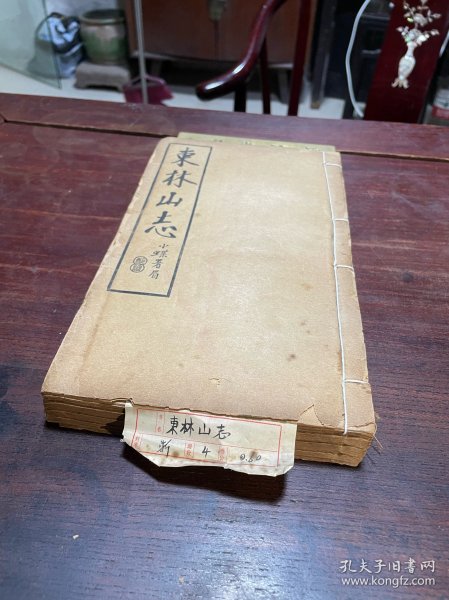 東林山志
小蝶署眉
東林山志
4
0.80
孔夫子旧书网
www.kongfz.com